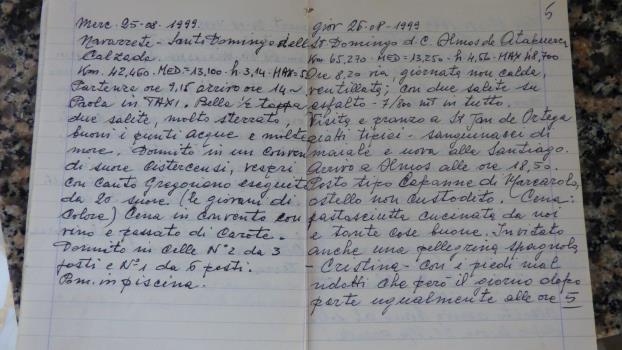 Merc. 25-08-1999.
Navarrete - Santo Domingo della
Calzada.
Km. 42,460 - MED = 13,100 - h 3,14 - MAX = 5
Partenza ore 9,15 arrivo ore 14 ~
Paola in TAXI. Bella ½ tappa
due salite, molto sterrato,
buoni i punti acque e molte
more. Dormito in un conven
di suore cistercensi, vespri
con canto Gregoriano eseguito
da 20 suore (le giovani di
colore) Cena in convento con
vino e passato di carote.
Dormito in celle N°2 da 3
posti e N°1 da 6 posti.
Pom. in piscina.
5
giov 26-08-1999
St Domingo d. C. Olmos de Atapuerca
Km. 65,270 - MED = 13,250 - h. 4,56 - MAX 48,700
Ore 8,20 via, giornata non calda,
ventillata; con due salite su
asfalto - 7/800 mt in tutto.
Visita e pranzo a St Jan de Ortega
piatti tipici - sanguinacci di
maiale e uova alla Santiago.
Arrivo a Olmos alle ore 18,50.
Posto tipo Capanne di Marcarolo,
ostello non custodito. Cena:
pastasciutta cucinata da noi
e tante cose buone. Invitato
anche una pellegrina spagnola
- Cristina - con i piedi mal
ridotti che però il giorno dopo
parte ugualmente alle ore 5